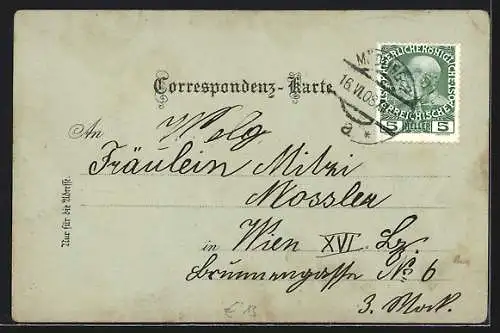 Correspondenz-Karte.
16.VI.08
5 HELLER 5
An
Wolg
Fräulein Mitzi
Mossler
in Wien XVI. Bz.
Brunnengasse No 6
3. Stock.
Nur für die Adresse.